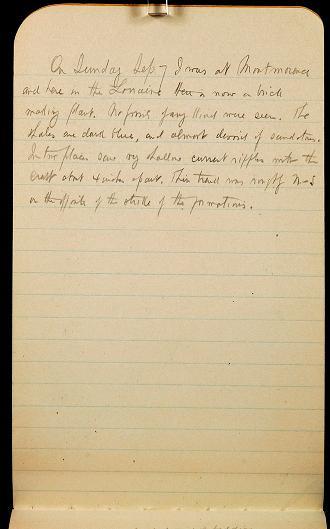 On Sunday Sep 7 I was at Montmorency
and here in the Lorraine there is now a brick
making plant. No fossils of any kind were seen. The
shales are dark blue, and almost devoid of sandstone.
In two places saw very shallow current ripples with the
crest about 4 inches apart. This trend was roughly N-S
or the opposite of the strike of the formations.